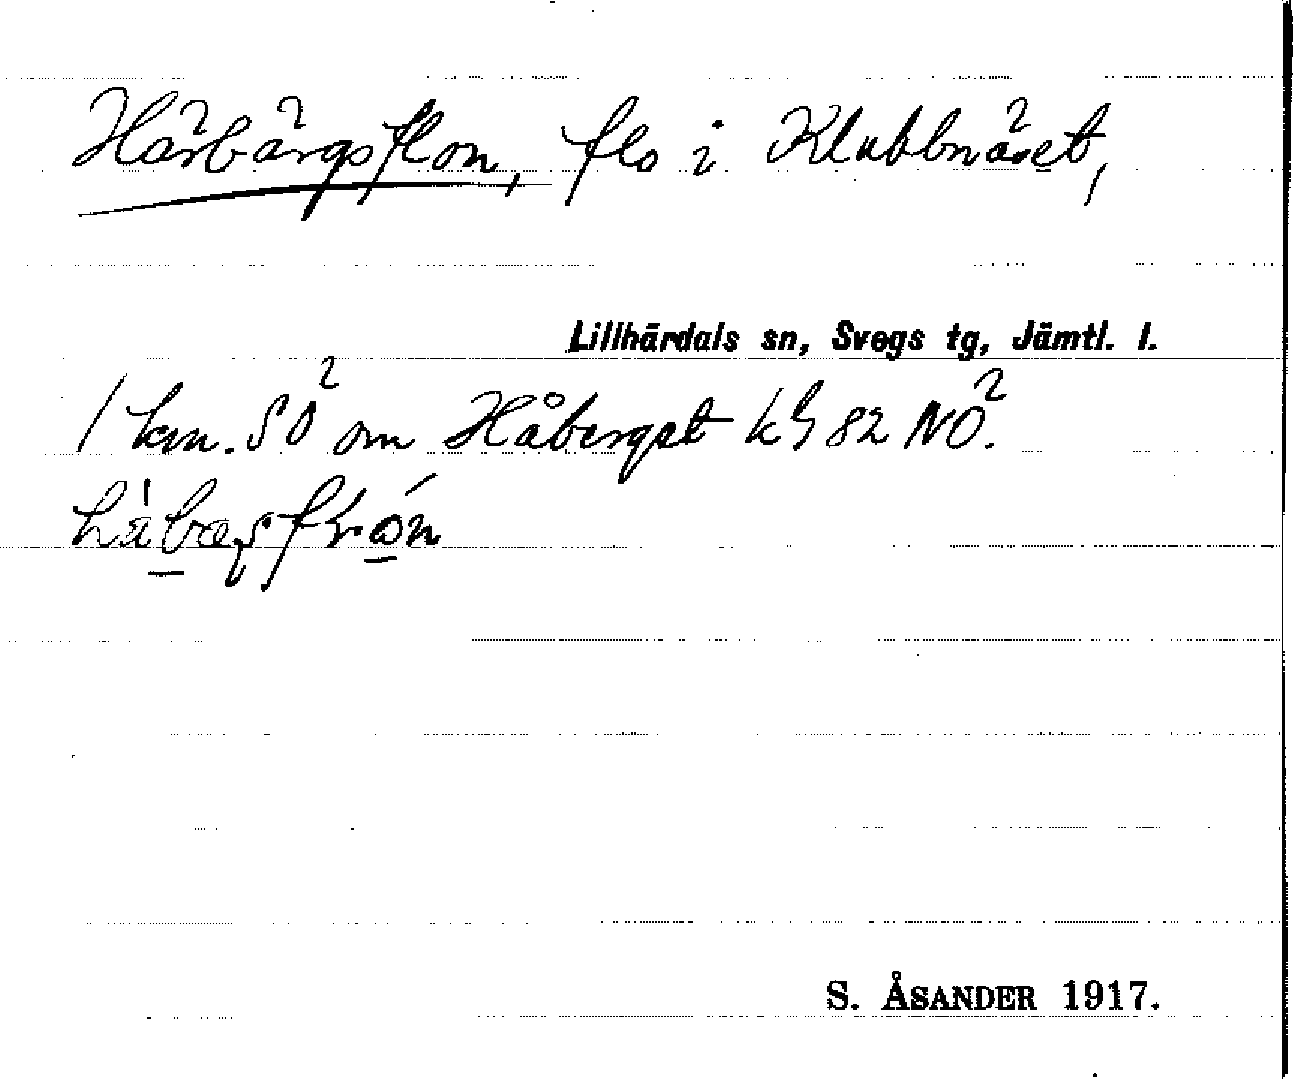 Härbärgsflon, flo i Klubbnäset,
Lillhärdals sn, Svegs tg, Jämtl. l.
1 km. SÖ om Håberget kG 82 NÖ.
S. ÅSANDER 1917.